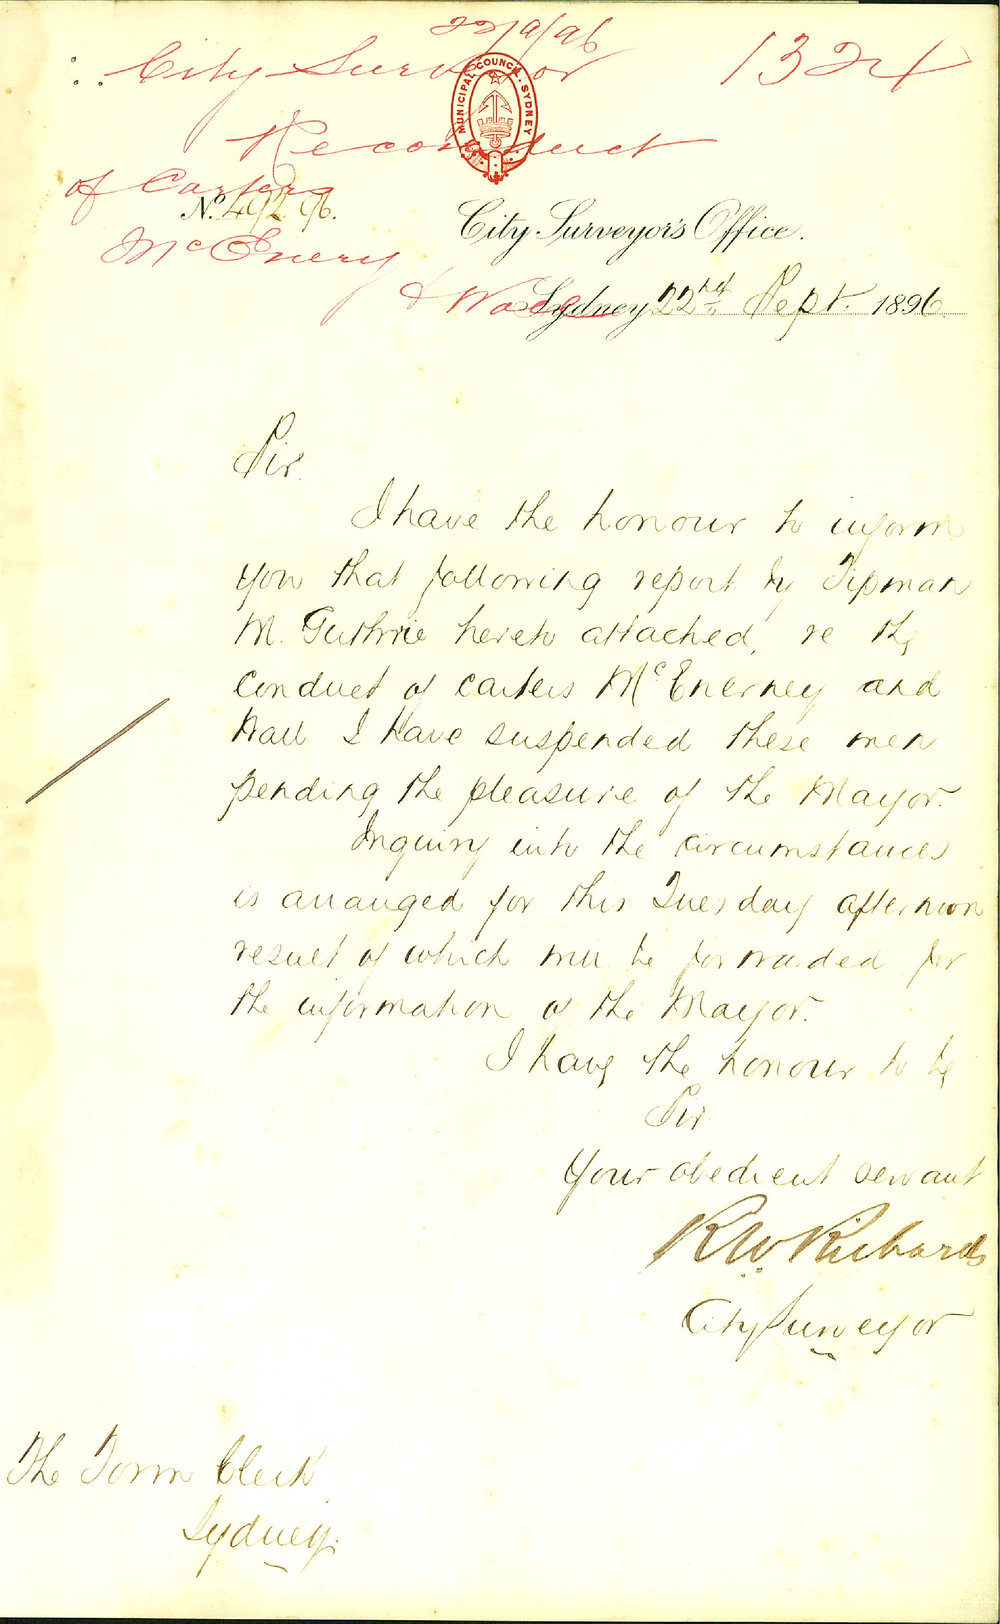 22/9/96
City Surveyor 1324
Re conduct
of Carters
McEnery
&
MUNICIPAL COUNCIL · SYDNEY
No. 492 96.
City Surveyor's Office.
Sydney 22nd Sept. 1896
Sir
I have the honour to inform
you that following report by Tipman
M. Guthrie hereto attached, re the
conduct of carters McEnerney and
Wall I have suspended these men
pending the pleasure of the Mayor.
Inquiry into the circumstances
is arranged for this Tuesday afternoon
result of which will be forwarded for
the information of the Mayor.
I have the honour to be
Sir
Your obedient servant
R W Richards
City Surveyor
The Town Clerk
Sydney.